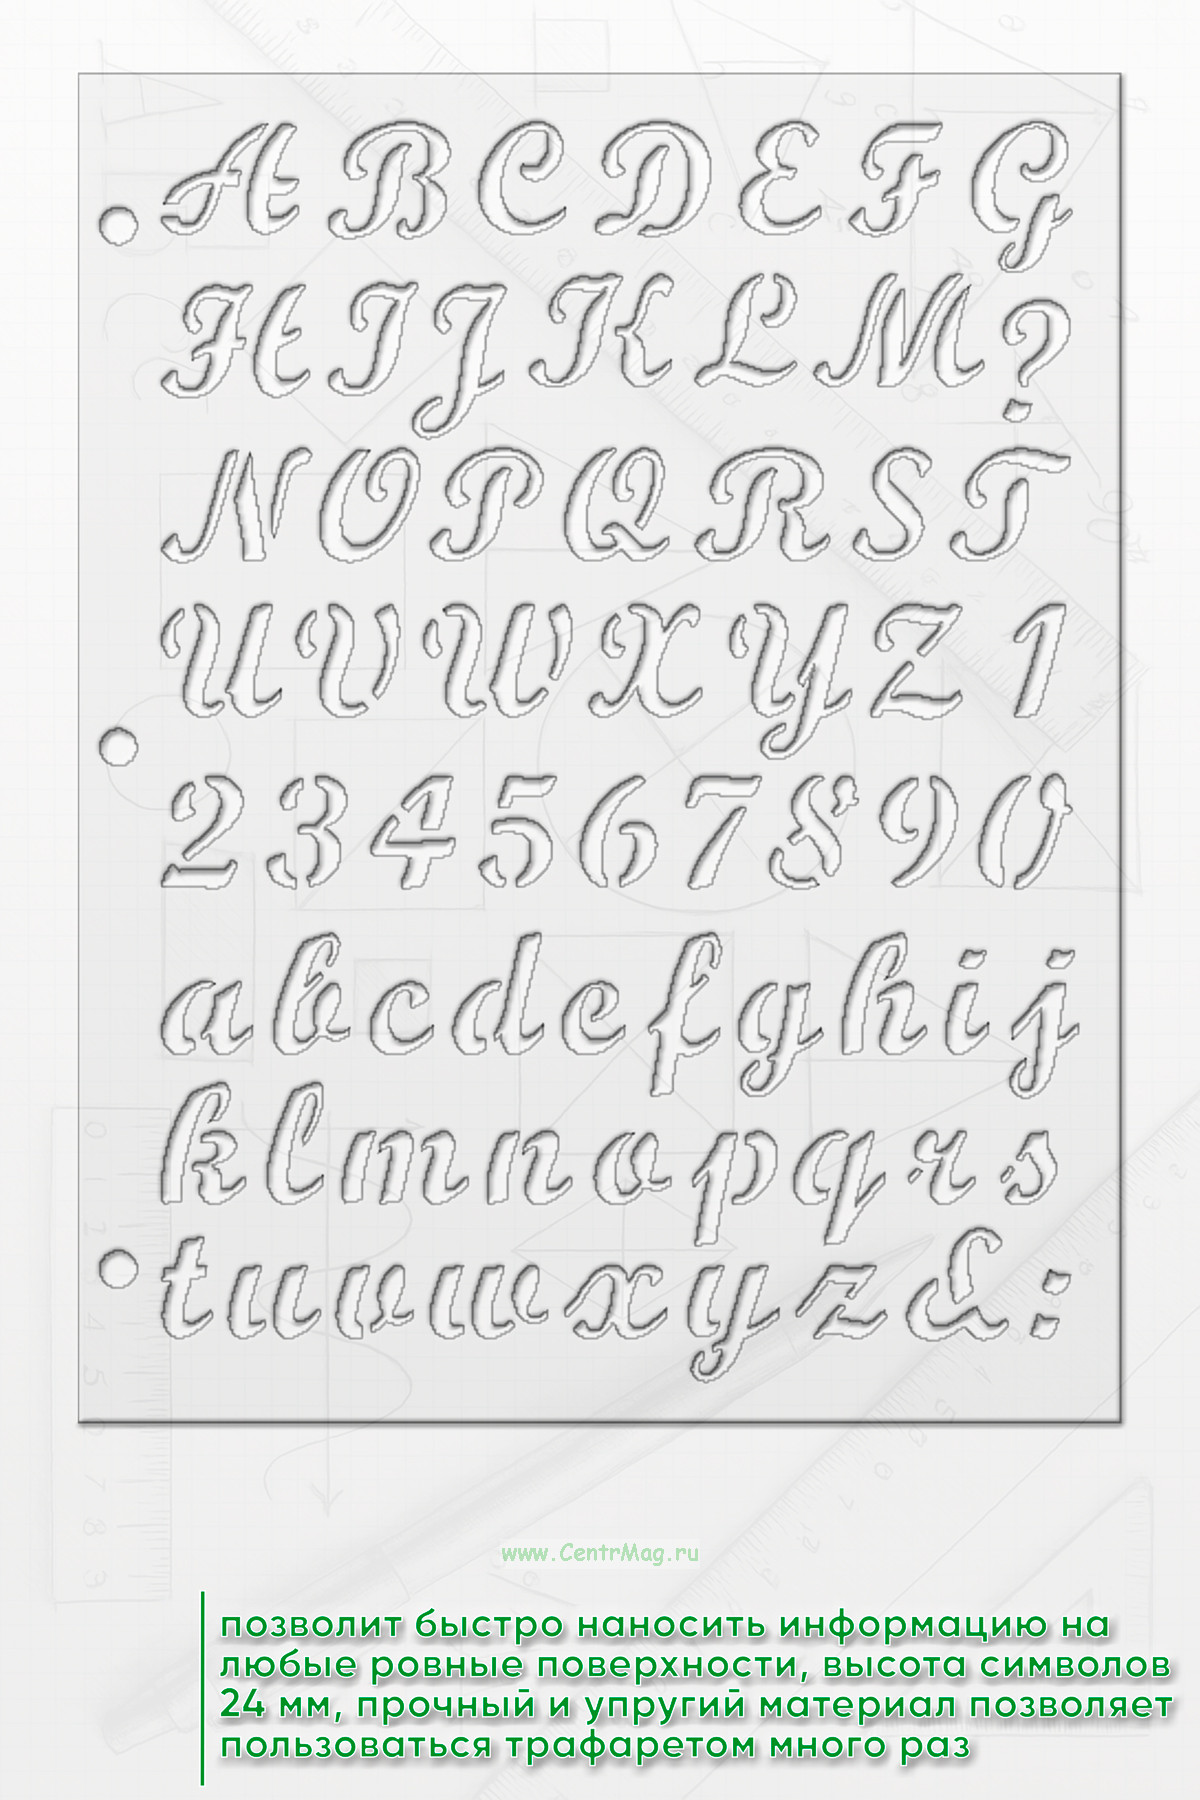 A B C D E F G
H I J K L M ?
N O P Q R S T
U V W X Y Z 1
2 3 4 5 6 7 8 9 0
a b c d e f g h i j
k l m n o p q r s
t u v w x y z & :
www.CentrMag.ru
позволит быстро наносить информацию на
любые ровные поверхности, высота символов
24 мм, прочный и упругий материал позволяет
пользоваться трафаретом много раз